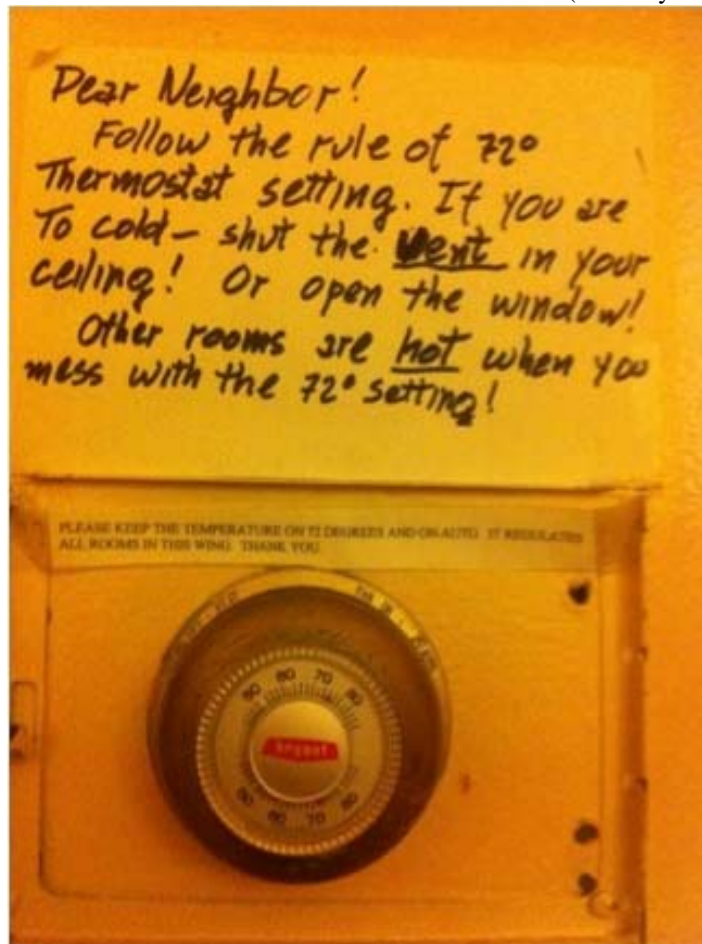 Dear Neighbor!
Follow the rule of 72°
Thermostat setting. If you are
To cold - shut the vent in your
ceiling! Or open the window!
Other rooms are hot when you
mess with the 72° setting!
PLEASE KEEP THE TEMPERATURE ON 72 DEGREES AND ON AUTO. IT REGULATES
ALL ROOMS IN THIS WING. THANK YOU.
50 60 70 80
bryant
50 60 70 80